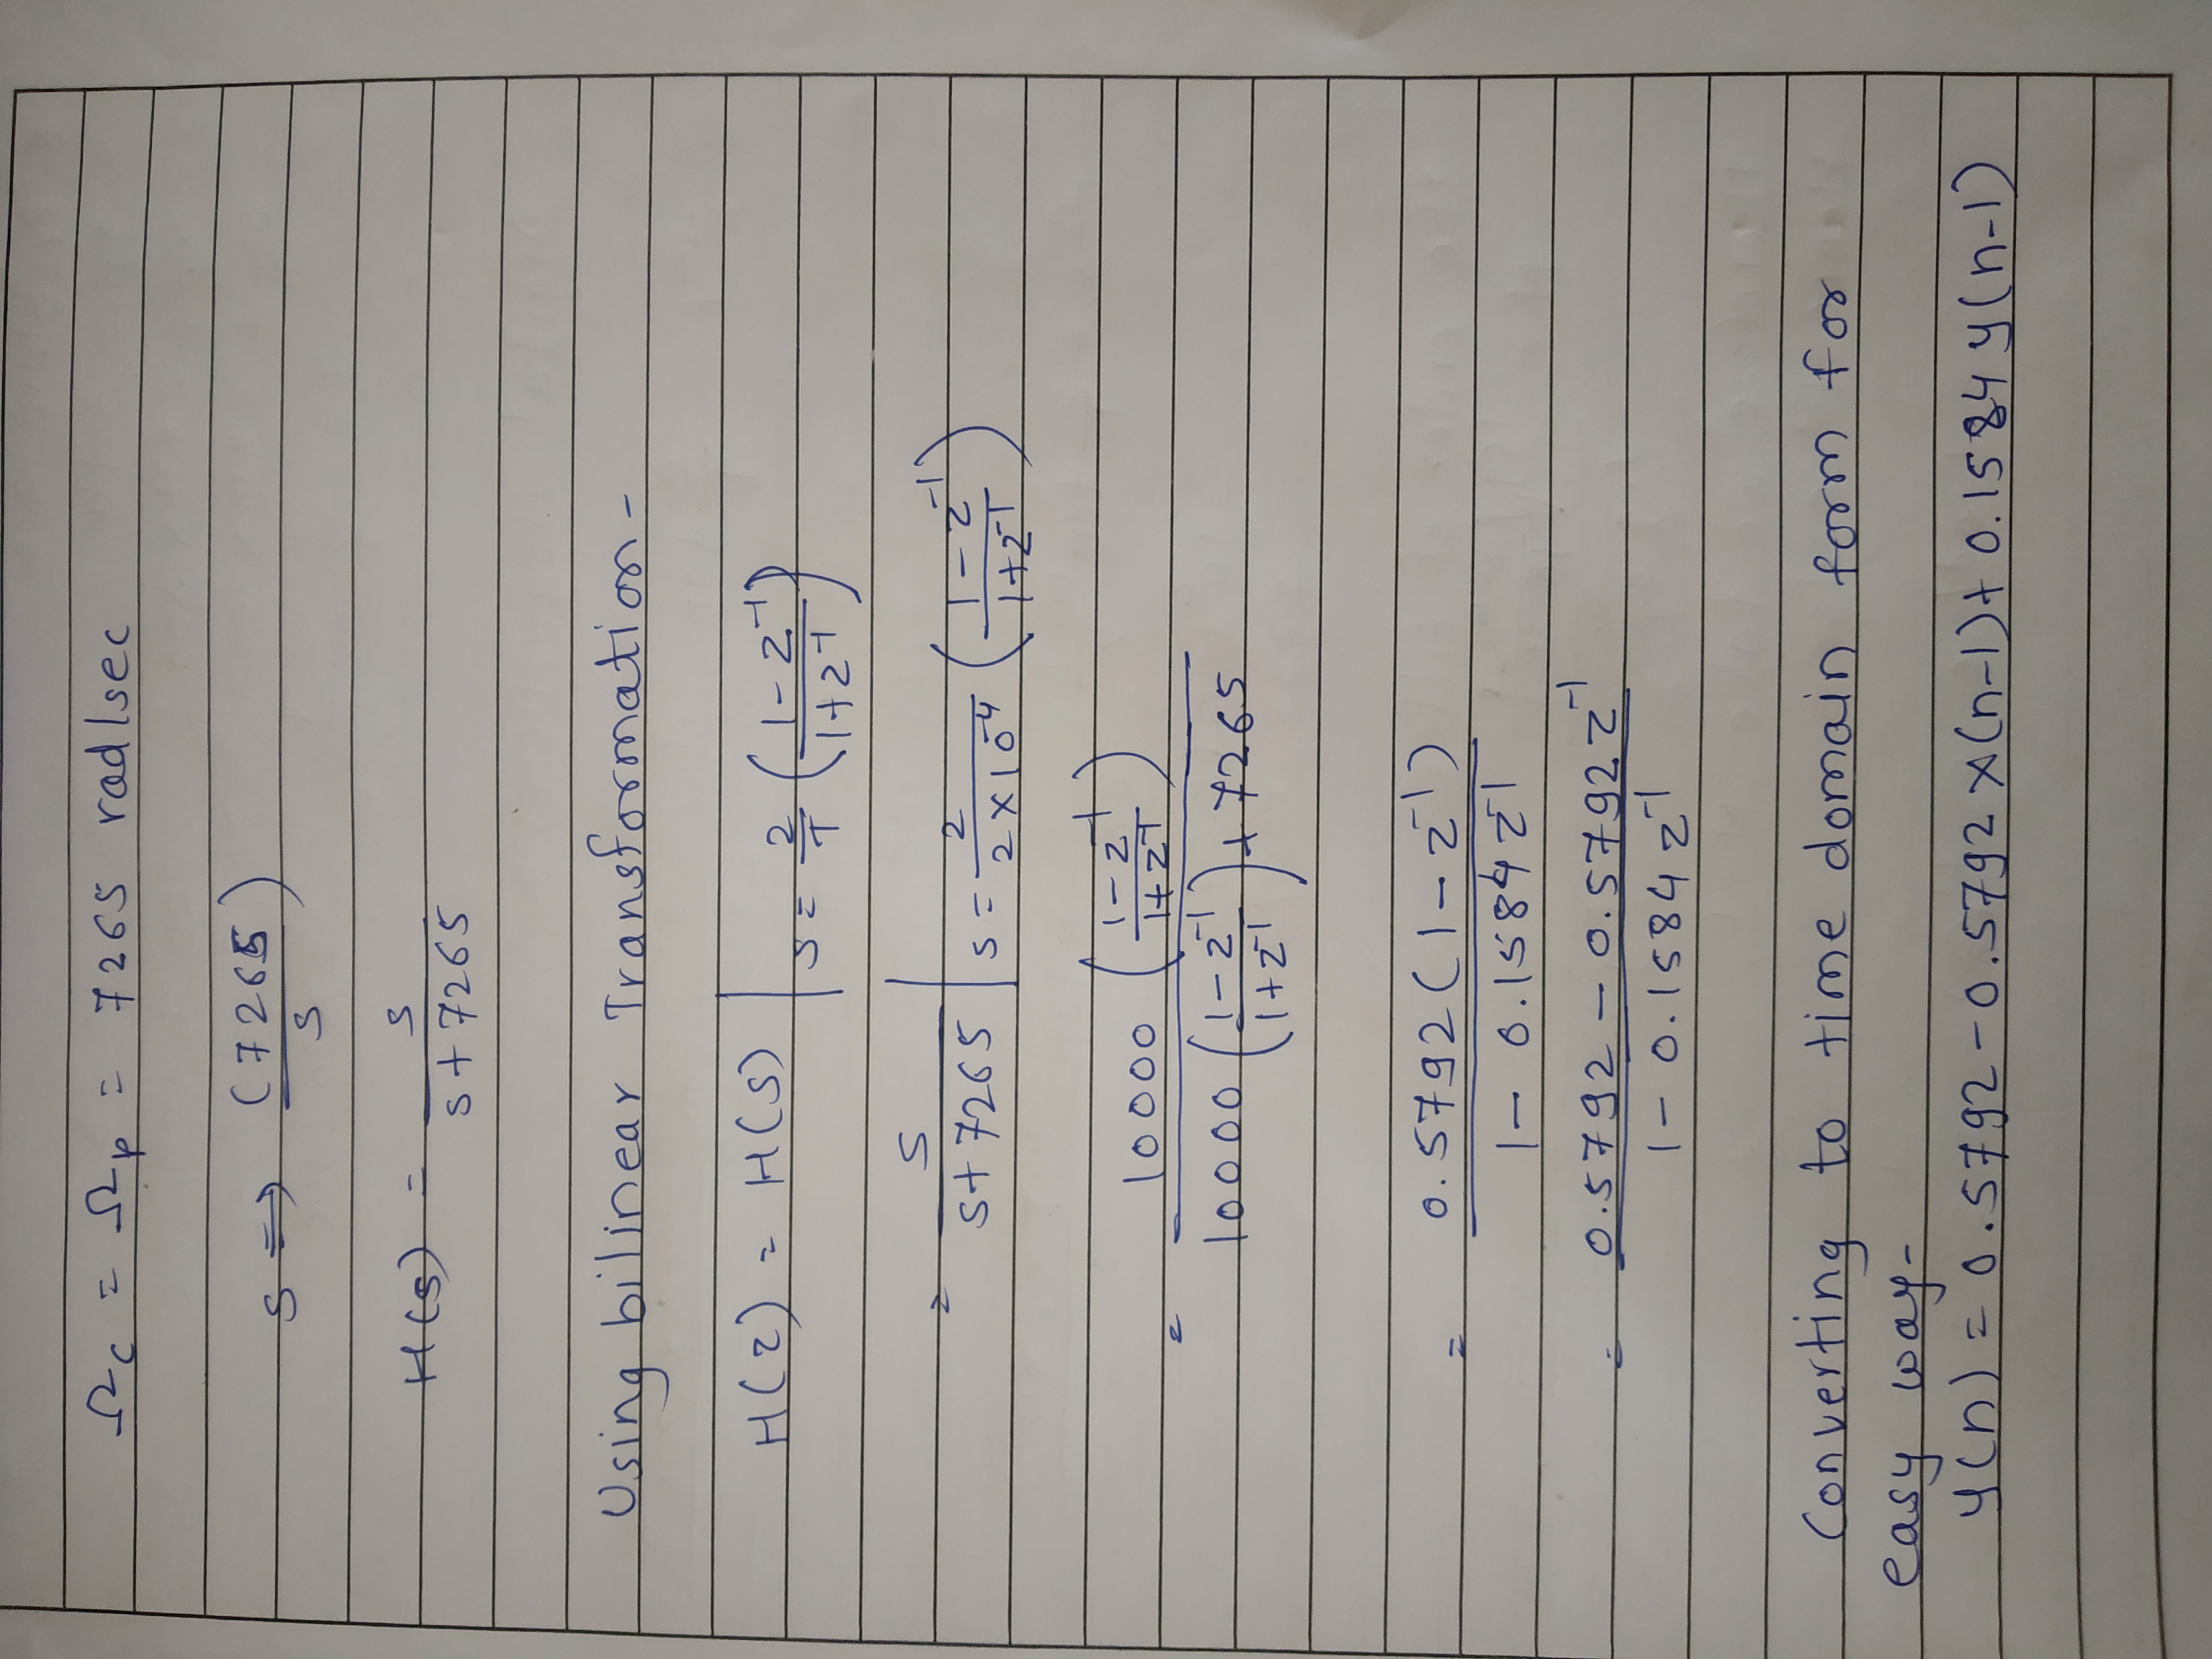 Ωc = Ωp = 7265 rad/sec
s ⇒ (7265)/s
H(s) = s/(s+7265)
Using bilinear Transformation-
H(z) = H(S) | s = 2/T ((1-z⁻¹)/(1+z⁻¹))
= s/(s+7265) | s = 2/(2×10⁻⁴) ((1-z⁻¹)/(1+z⁻¹))
= 10000 ((1-z⁻¹)/(1+z⁻¹)) / (10000 ((1-z⁻¹)/(1+z⁻¹)) + 7265)
= 0.5792(1-z⁻¹) / (1- 0.1584z⁻¹)
= (0.5792 - 0.5792z⁻¹) / (1- 0.1584z⁻¹)
Converting to time domain form for
easy way-
y(n) = 0.5792-0.5792x(n-1)+ 0.1584y(n-1)